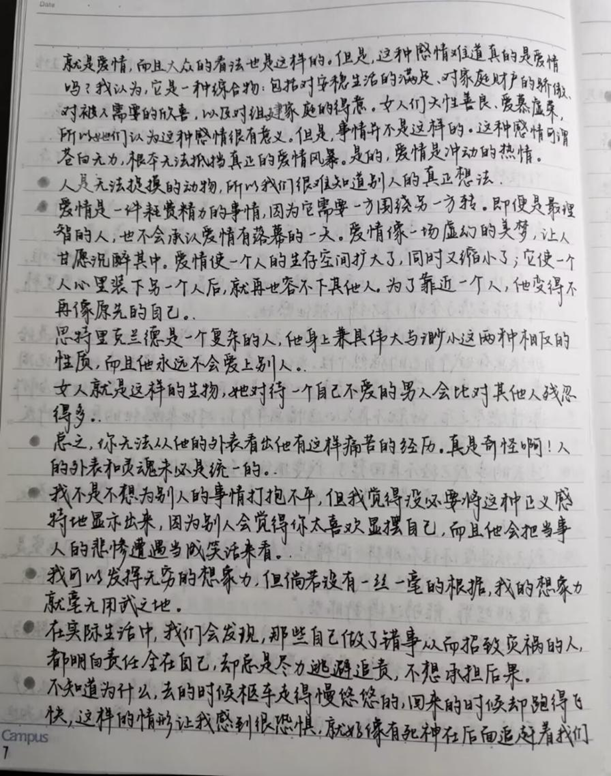 Date
就是爱情,而且大众的看法也是这样的。但是,这种感情难道真的是爱情
吗?我认为,它是一种综合物:包括对安稳生活的满足、对家庭财产的骄傲、
对被人需要的欣喜,以及对组建家庭的得意。女人们天性善良、爱慕虚荣,
所以她们认为这种感情很有意义。但是,事情并不是这样的。这种感情可谓
苍白无力,根本无法抵挡真正的爱情风暴。是的,爱情是冲动的热情。
人是无法捉摸的动物,所以我们很难知道别人的真正想法.
爱情是一件耗费精力的事情,因为它需要一方围绕另一方转。即便是最理
智的人,也不会承认爱情有落幕的一天。爱情像一场虚幻的美梦,让人
甘愿沉醉其中。爱情使一个人的生存空间扩大了,同时又缩小了;它使一个
人心里装下另一个人后,就再也容不下其他人。为了靠近一个人,他变得不
再像原先的自己..
思特里克兰德是一个复杂的人,他身上兼具伟大与渺小这两种相反的
性质,而且他永远不会爱上别人..
女人就是这样的生物,她对待一个自己不爱的男人会比对其他人残忍
得多..
总之,你无法从他的外表看出他有这样痛苦的经历。真是奇怪啊!人
的外表和灵魂未必是统一的..
我不是不想为别人的事情打抱不平,但我觉得没必要将这种正义感
特地显示出来,因为别人会觉得你太喜欢显摆自己,而且他会把当事
人的悲惨遭遇当成笑话来看..
我可以发挥无穷的想象力,但倘若没有一丝一毫的根据,我的想象力
就毫无用武之地。
在实际生活中,我们会发现,那些自己做了错事从而招致灾祸的人,
都明白责任全在自己,却总是尽力逃避追责,不想承担后果。
不知道为什么,去的时候柩车走得慢悠悠的,回来的时候却跑得飞
快,这样的情形让我感到很恐惧,就好像有死神在后面追赶着我们
Campus
7